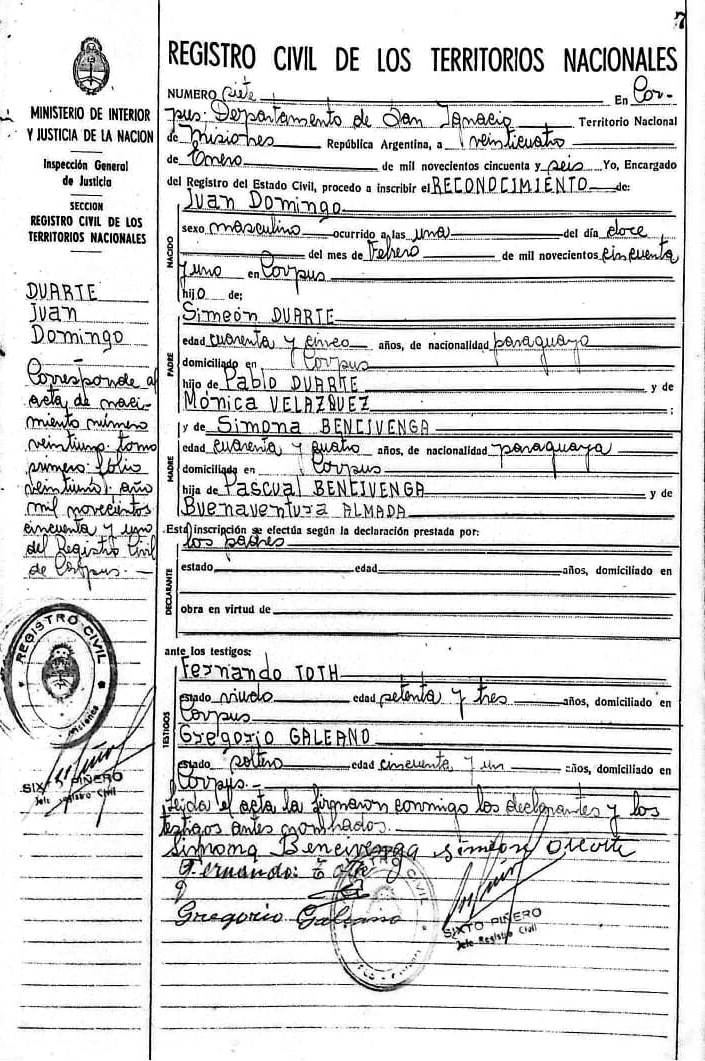 7
MINISTERIO DE INTERIOR
Y JUSTICIA DE LA NACION
Inspección General
de Justicia
SECCION
REGISTRO CIVIL DE LOS
TERRITORIOS NACIONALES
DUARTE
Juan
Domingo
Corresponde al
acta de naci-
miento número
veintiuno tomo
primero folio
veintiuno año
mil novecientos
cincuenta y uno
del Registro Civil
de Corpus.
REGISTRO CIVIL
Misiones
SIXTO PIÑERO
Jefe Registro Civil
REGISTRO CIVIL DE LOS TERRITORIOS NACIONALES
NUMERO siete En Cor-
pus: Departamento de San Ignacio Territorio Nacional
de Misiones República Argentina, a veinticuatro
de Enero de mil novecientos cincuenta y seis Yo, Encargado
del Registro del Estado Civil, procedo a inscribir el RECONOCIMIENTO de:
NACIDO
Juan Domingo
sexo masculino ocurrido a las una del día doce
del mes de Febrero de mil novecientos cincuenta
y uno en Corpus
hijo de;
PADRE
Simeón DUARTE
edad cuarenta y cinco años, de nacionalidad paraguaya
domiciliado en Corpus
hijo de Pablo DUARTE y de
Mónica VELAZQUEZ ;
MADRE
y de Simona BENCIVENGA
edad cuarenta y cuatro años, de nacionalidad paraguaya
domiciliada en Corpus
hija de Pascual BENCIVENGA y de
Buenaventura ALMADA
Esta inscripción se efectúa según la declaración prestada por:
DECLARANTE
los padres
estado edad años, domiciliado en
obra en virtud de
ante los testigos:
TESTIGOS
Fernando TOTH
estado viudo edad setenta y tres años, domiciliado en
Corpus
Gregorio GALEANO
estado soltero edad cincuenta y un años, domiciliado en
Corpus.
Leida el acta la firmaron conmigo los declarantes y los
testigos antes nombrados.
Simona Bencivenga Simeon Duarte
Fernando Toth
Gregorio Galeano
SIXTO PIÑERO
Jefe Registro Civil